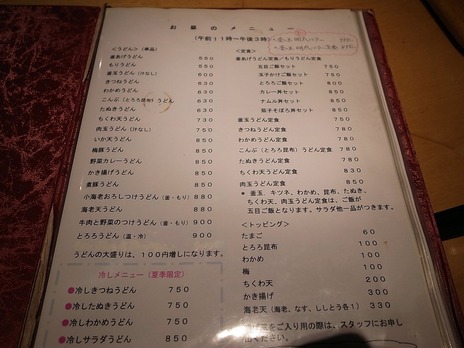 お昼のメニュー
（午前11時～午後3時）
＜うどん＞（単品）
釜あげうどん 550
もりうどん 550
釜玉うどん（汁なし） 600
きつねうどん 630
わかめうどん 630
こんぶ（とろろ昆布）うどん 630
たぬきうどん 630
ちくわ天うどん 730
肉玉うどん（汁なし） 750
いか天うどん 800
梅豚うどん 850
野菜カレーうどん 850
かき揚げうどん 850
煮豚うどん 850
小海老おろしつけうどん（釜・もり） 880
海老天うどん 880
牛肉と野菜のつけうどん（釜・もり） 900
とろろうどん（温・冷） 900
うどんの大盛りは、100円増しになります。
冷しメニュー（夏季限定）
●冷しきつねうどん 750
●冷したぬきうどん 750
●冷しわかめうどん 750
●冷しサラダうどん 850
＜定食＞
釜あげうどん定食／もりうどん定食
五目ご飯セット 780
玉子かけご飯セット 780
とろろご飯セット 880
カレー丼セット 850
ナムル丼セット 850
茄子そぼろ丼セット 850
釜玉うどん定食 750
きつねうどん定食 780
わかめうどん定食 780
こんぶ（とろろ昆布）うどん定食 780
たぬきうどん定食 780
ちくわ天うどん定食 830
肉玉うどん定食 850
＊釜玉、キツネ、わかめ、昆布、たぬき、
ちくわ天、肉玉うどん定食は、ご飯が
五目ご飯となります。サラダ他一品がつきます。
＜トッピング＞
たまご 60
とろろ昆布 100
わかめ 100
梅 100
ちくわ天 200
かき揚げ 300
海老天（海老、なす、ししとう各1） 330
をご入り用の際は、スタッフにお申し